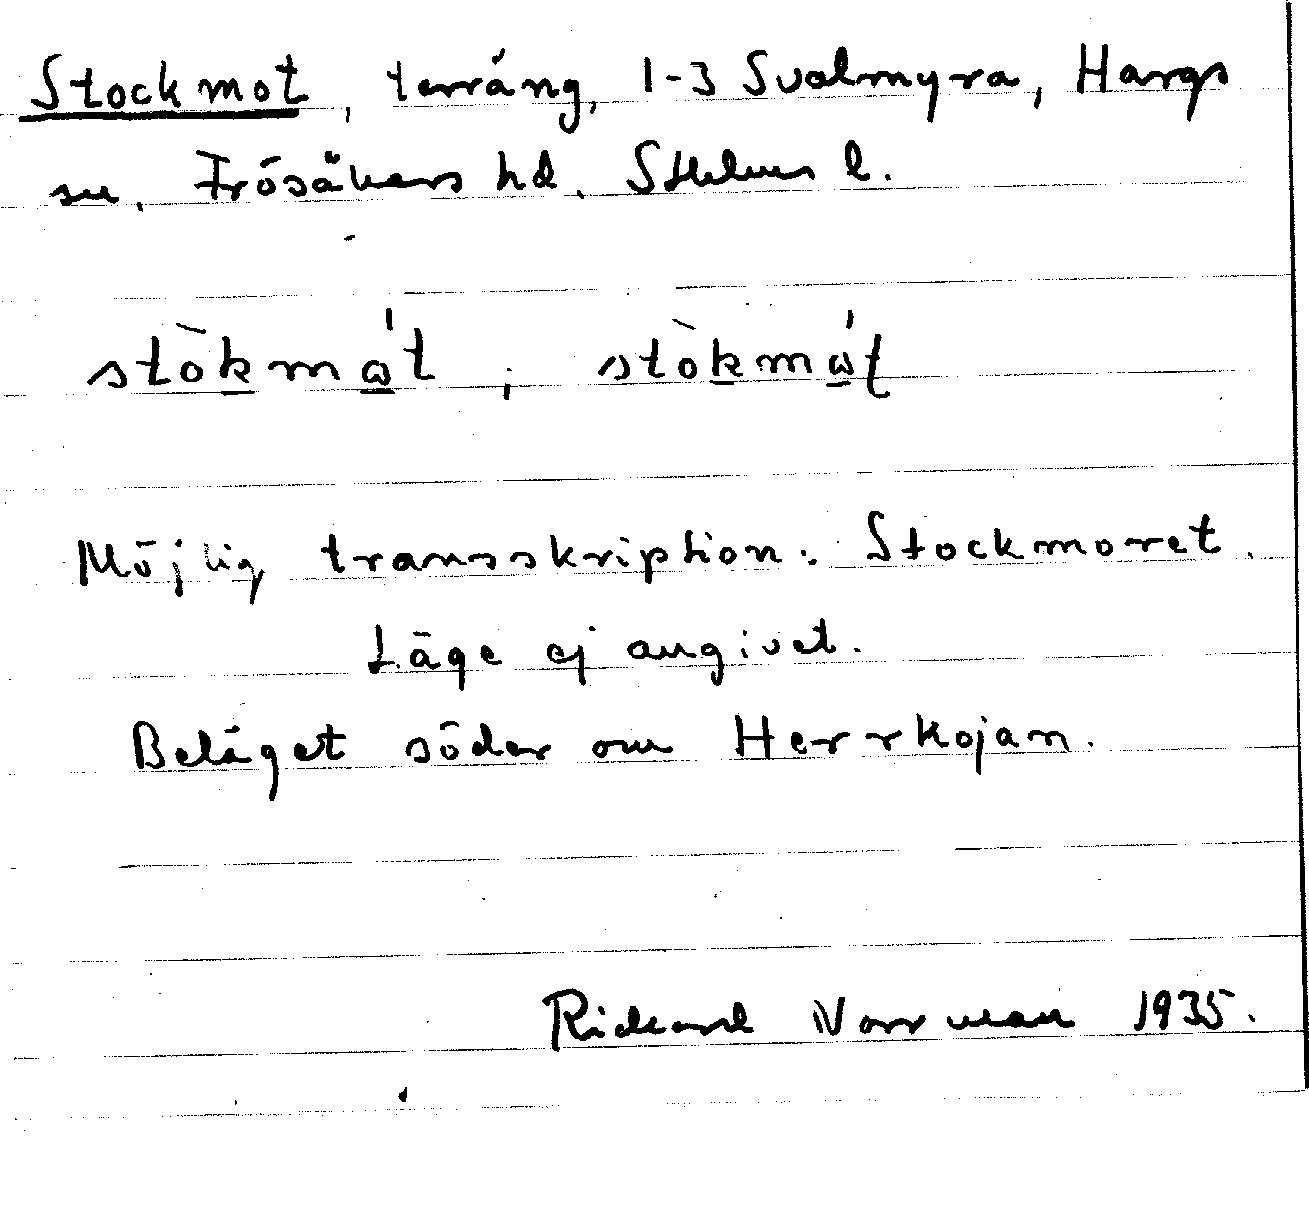 Stockmot, terräng, 1-3 Svalmyra, Hargs
sn, Frösåkers hd. Sthlms l.
stòkma̲'t, stòkma̲'t
Möjlig transskription: Stockmoret.
Läge ej angivet.
Beläget söder om Herrkojan.
Rickard Norrman 1935.